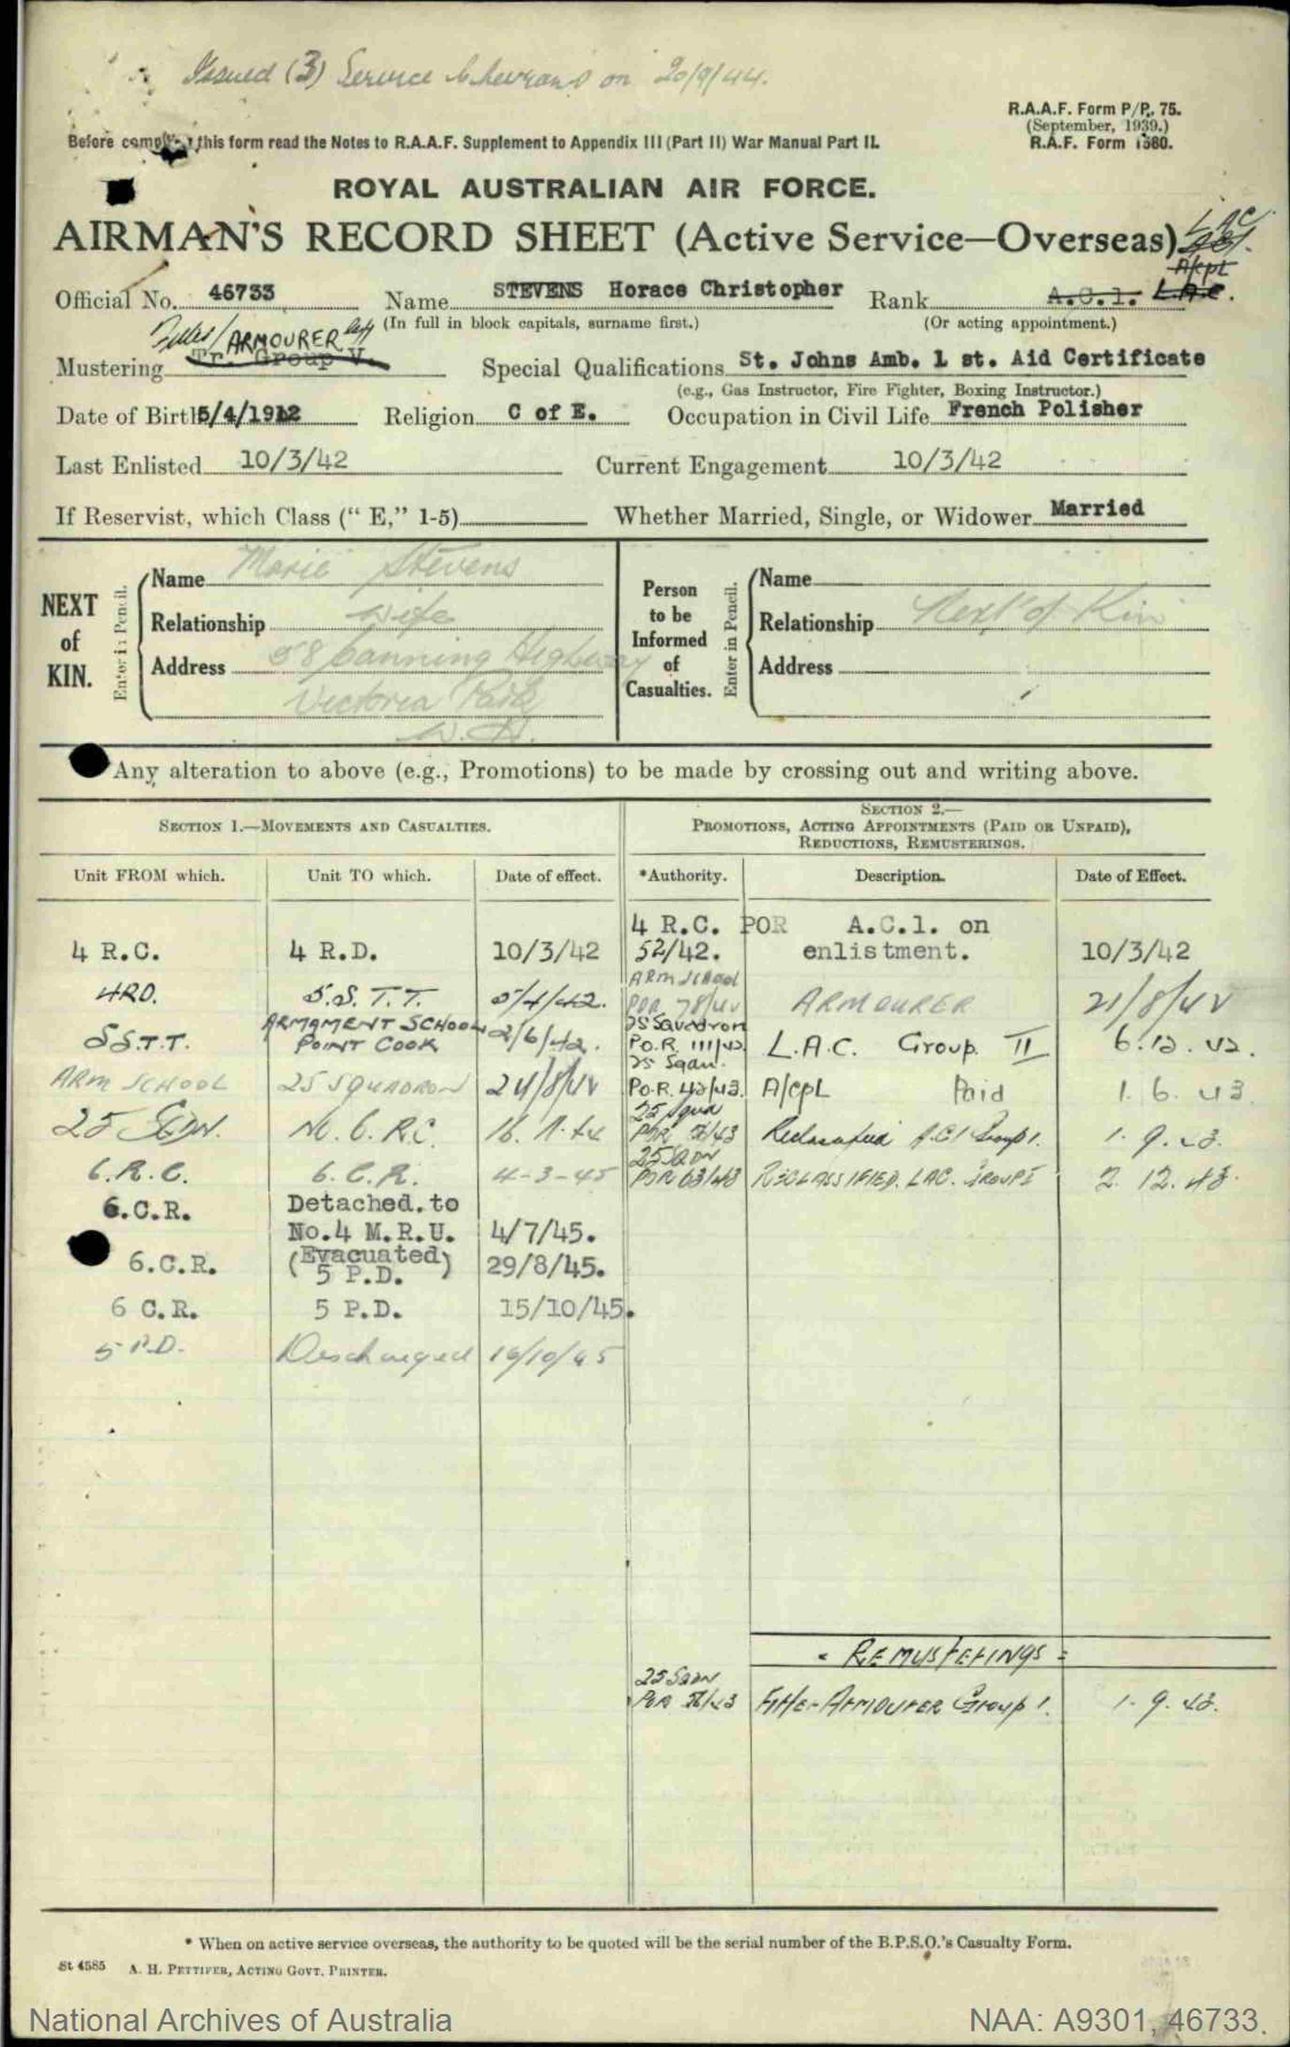 Issued (3) Service Chevrons on 20/9/44.
R.A.A.F. Form P/P. 75.
(September, 1939.)
R.A.F. Form 1580.
Before this form read the Notes to R.A.A.F. Supplement to Appendix III (Part II) War Manual Part II.
ROYAL AUSTRALIAN AIR FORCE.
AIRMAN'S RECORD SHEET (Active Service—Overseas)
LAC
A/cpl
Official No. 46733 Name STEVENS Horace Christopher Rank A.C.1. L.A.C.
(In full in block capitals, surname first.) (Or acting appointment.)
ARMOURER
Mustering Tr. Group V. Special Qualifications St. Johns Amb. 1 st. Aid Certificate
(e.g., Gas Instructor, Fire Fighter, Boxing Instructor.)
Date of Birth 5/4/1912 Religion C of E. Occupation in Civil Life French Polisher
Last Enlisted 10/3/42 Current Engagement 10/3/42
If Reservist, which Class (" E," 1-5) Whether Married, Single, or Widower Married
NEXT of KIN. Enter in Pencil.
Name Marie Stevens
Relationship Wife
Address 58 Canning Highway
Victoria Park
W.A.
Person to be Informed of Casualties. Enter in Pencil.
Name
Relationship Next of Kin
Address
Any alteration to above (e.g., Promotions) to be made by crossing out and writing above.
SECTION 1.—MOVEMENTS AND CASUALTIES.
SECTION 2.—
PROMOTIONS, ACTING APPOINTMENTS (PAID OR UNPAID),
REDUCTIONS, REMUSTERINGS.
Unit FROM which. Unit TO which. Date of effect. *Authority. Description. Date of Effect.
4 R.C. POR A.C.1. on
4 R.C. 4 R.D. 10/3/42 52/42. enlistment. 10/3/42
ARM SCHOOL
4RD. 5.S.T.T. 5/4/42. POR 78/42 ARMOURER 21/8/42
ARMAMENT SCHOOL 25 Squadron
5S.T.T. POINT COOK 2/6/42. P.O.R. 111/42 L.A.C. Group II 6.12.42.
25 Sqdn.
ARM SCHOOL 25 SQUADRON 24/8/42 P.O.R. 42/43. A/cpl Paid 1.6.43
25 Sqdn
25 SQDN. POR /43 Reclassified A.C.1 Group 1. 1.9.43.
25 SQDN
C.R.C. 6.C.R. 4-3-45 POR 63/43 RECLASSIFIED. LAC. GROUP I 2.12.43.
6.C.R. Detached.to
No.4 M.R.U. 4/7/45.
6.C.R. (Evacuated)
5 P.D. 29/8/45.
6 C.R. 5 P.D. 15/10/45.
5 P.D. Discharged 16/10/45
REMUSTERINGS
25 SQDN
POR /43 Fitter-ARMOURER Group 1. 1.9.43.
* When on active service overseas, the authority to be quoted will be the serial number of the B.P.S.O.'s Casualty Form.
St 4585 A. H. PETTIFER, ACTING GOVT. PRINTER.
National Archives of Australia
NAA: A9301, 46733.